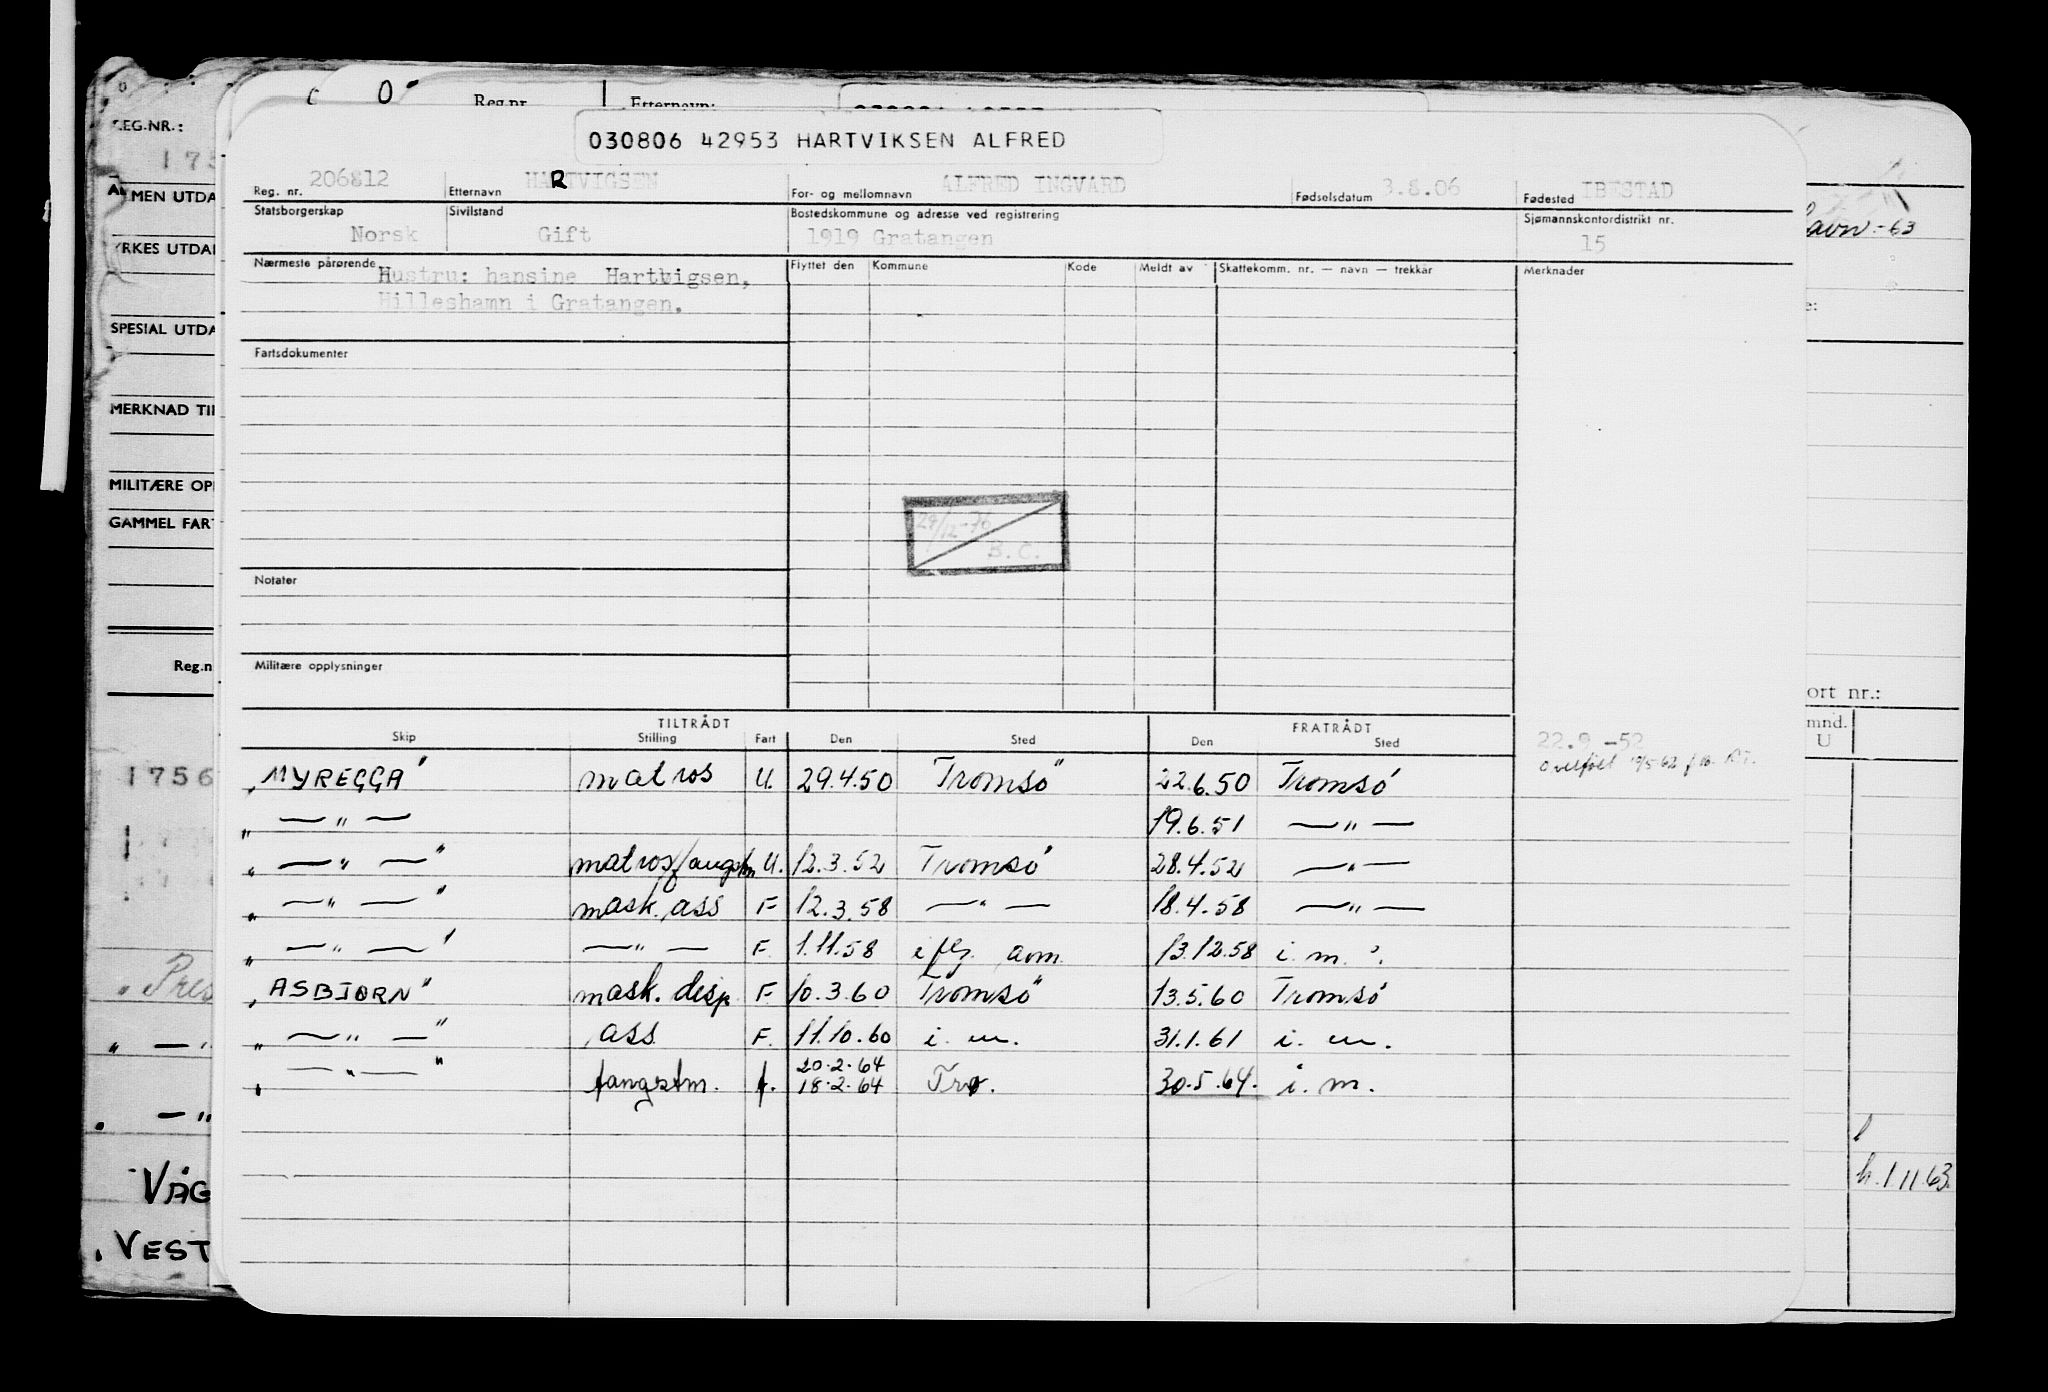 O
Reg.nr.
Etternavn:
030806 42953 HARTVIKSEN ALFRED
Reg. nr. 206812 Etternavn HARTVIGSEN For- og mellomnavn ALFRED INGVARD Fødselsdatum 3.8.06 Fødested IBESTAD
Statsborgerskap Sivilstand Bostedskommune og adresse ved registrering Sjømannskontordistrikt nr.
Norsk Gift 1919 Gratangen 15
Nærmeste pårørende Flyttet den Kommune Kode Meldt av Skattekomm. nr. — navn — trekkår Merknader
Hustru: hansine Hartvigsen,
Hilleshamn i Gratangen.
Fartsdokumenter
29/12-76
B.C.
Notater
Militære opplysninger
TILTRÅDT FRATRÅDT
Skip Stilling Fart Den Sted Den Sted
22.9 -52
"MYREGGA" matros U. 29.4.50 Tromsö 22.6.50 Tromsö
" — " — 19.6.51 — " —
" — " — " matros/fangstm U. 12.3.52 Tromsö 28.4.52 — " —
" — " — " mask. ass F 12.3.58 — " — 18.4.58 — " —
" — " — " — " — F. 1.11.58 13.12.58 i. m.
"ASBJØRN" mask. disp F 10.3.60 Tromsö 13.5.60 Tromsö
" — " — " ass F. 11.10.60 i. m. 31.1.61 i. m.
20.2.64
" — " — " fangstm. f. 18.2.64 Tro. 30.5.64. i. m.
REG.NR.:
175
ALMEN UTDA
YRKES UTDA
SPESIAL UTDA
MERKNAD TIL
MILITÆRE OPP
GAMMEL FART
Reg.n
1756
" Pres
" — "
" — "
VÅG
"VEST
havn.-63
e:
ort nr.:
mnd.
U
h. 1.11.63.